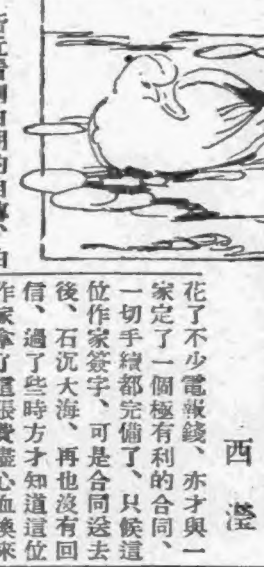 西瀅
花了不少電報錢、亦才與一
家定了一個極有利的合同、
一切手續都完備了、只候這
位作家簽字、可是合同送去
後、石沉大海、再也沒有回
信、過了些時方才知道這位
作家拿了這張費盡心血換來